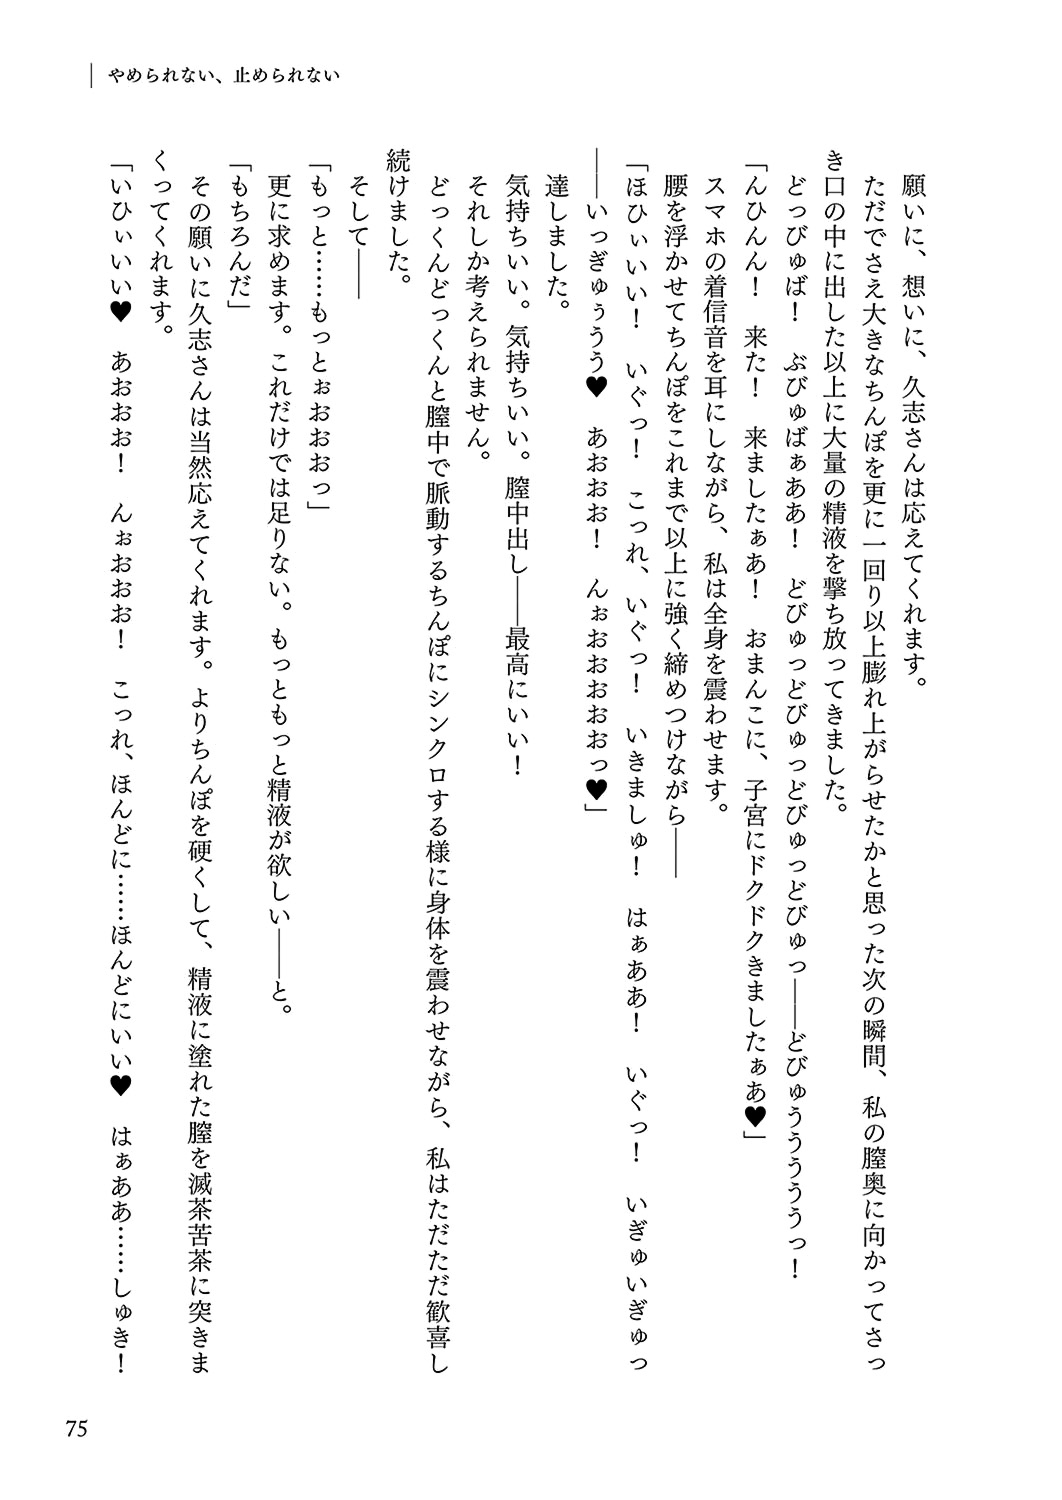 やめられない、止められない
願いに、想いに、久志さんは応えてくれます。
ただでさえ大きなちんぽを更に一回り以上膨れ上がらせたかと思った次の瞬間、私の膣奥に向かってさっ
き口の中に出した以上に大量の精液を撃ち放ってきました。
どっびゅば！　ぶびゅばぁああ！　どびゅっどびゅっどびゅっどびゅっ――どびゅうううううっ！
「んひんん！　来た！　来ましたぁあ！　おまんこに、子宮にドクドクきましたぁあ♥」
スマホの着信音を耳にしながら、私は全身を震わせます。
腰を浮かせてちんぽをこれまで以上に強く締めつけながら――
「ほひぃいい！　いぐっ！　こっれ、いぐっ！　いきましゅ！　はぁああ！　いぐっ！　いぎゅいぎゅっ
――いっぎゅぅうう♥　あおおお！　んぉおおおおおっ♥」
達しました。
気持ちいい。気持ちいい。膣中出し――最高にいい！
それしか考えられません。
どっくんどっくんと膣中で脈動するちんぽにシンクロする様に身体を震わせながら、私はただただ歓喜し
続けました。
そして――
「もっと……もっとぉおおおっ」
更に求めます。これだけでは足りない。もっともっと精液が欲しい――と。
「もちろんだ」
その願いに久志さんは当然応えてくれます。よりちんぽを硬くして、精液に塗れた膣を滅茶苦茶に突きま
くってくれます。
「いひぃいい♥　あおおお！　んぉおおお！　こっれ、ほんどに……ほんどにいい♥　はぁああ……しゅき！
75